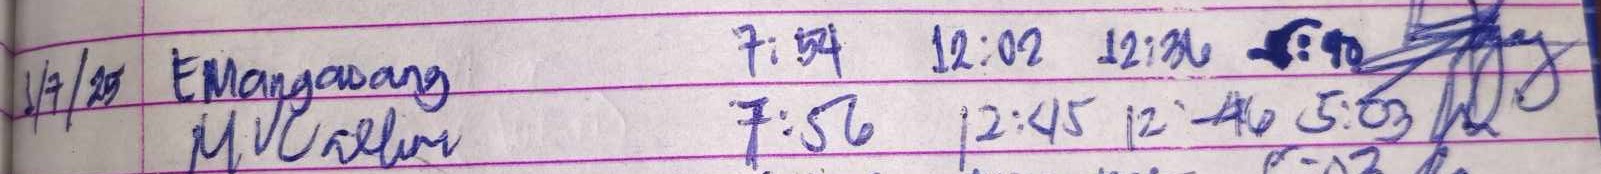 1/7/25 EMangawang 7:54 12:02 12:36 :40
7:56 12:45 12:46 5:03